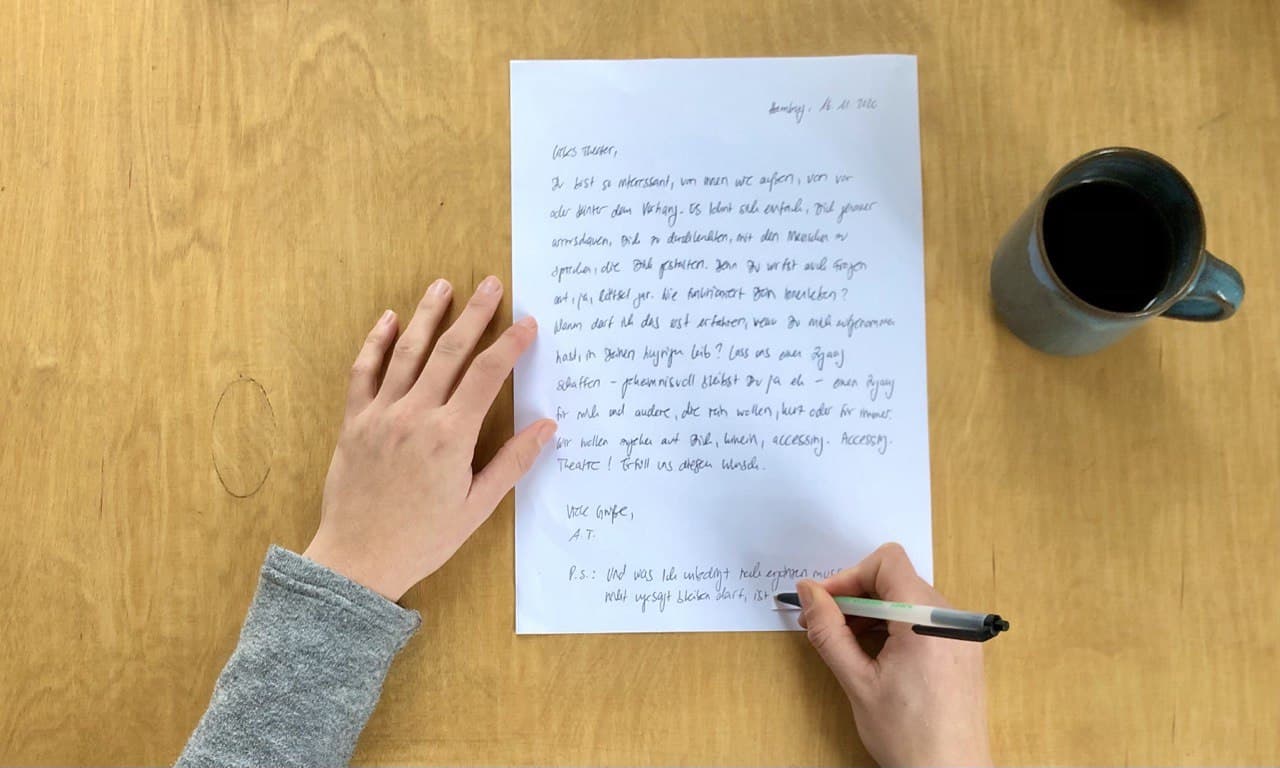 Hamburg, 16.11.2020
Liebes Theater,
Du bist so interessant, von innen wie außen, von vor
oder hinter dem Vorhang. Es lohnt sich einfach, Dich genauer
anzuschauen, Dich zu durchleuchten, mit den Menschen zu
sprechen, die Dich gestalten. Denn Du wirfst auch Fragen
auf, ja, Rätsel gar. Wie funktioniert Dein Innenleben?
Warum darf ich das erst erfahren, wenn Du mich aufgenommen
hast, in Deinen Leib? Lass uns einen Zugang
schaffen – geheimnisvoll bleibst Du ja eh – einen Zugang
für mich und andere, die rein wollen, kurz oder für immer.
Wir wollen zugehen auf Dich, hinein, accessing. Accessing
Theatre! Erfüll uns diesen Wunsch.
Viele Grüße,
A.T.
P.S.: Und was ich unbedingt noch ergänzen muss
nicht ungesagt bleiben darf, ist